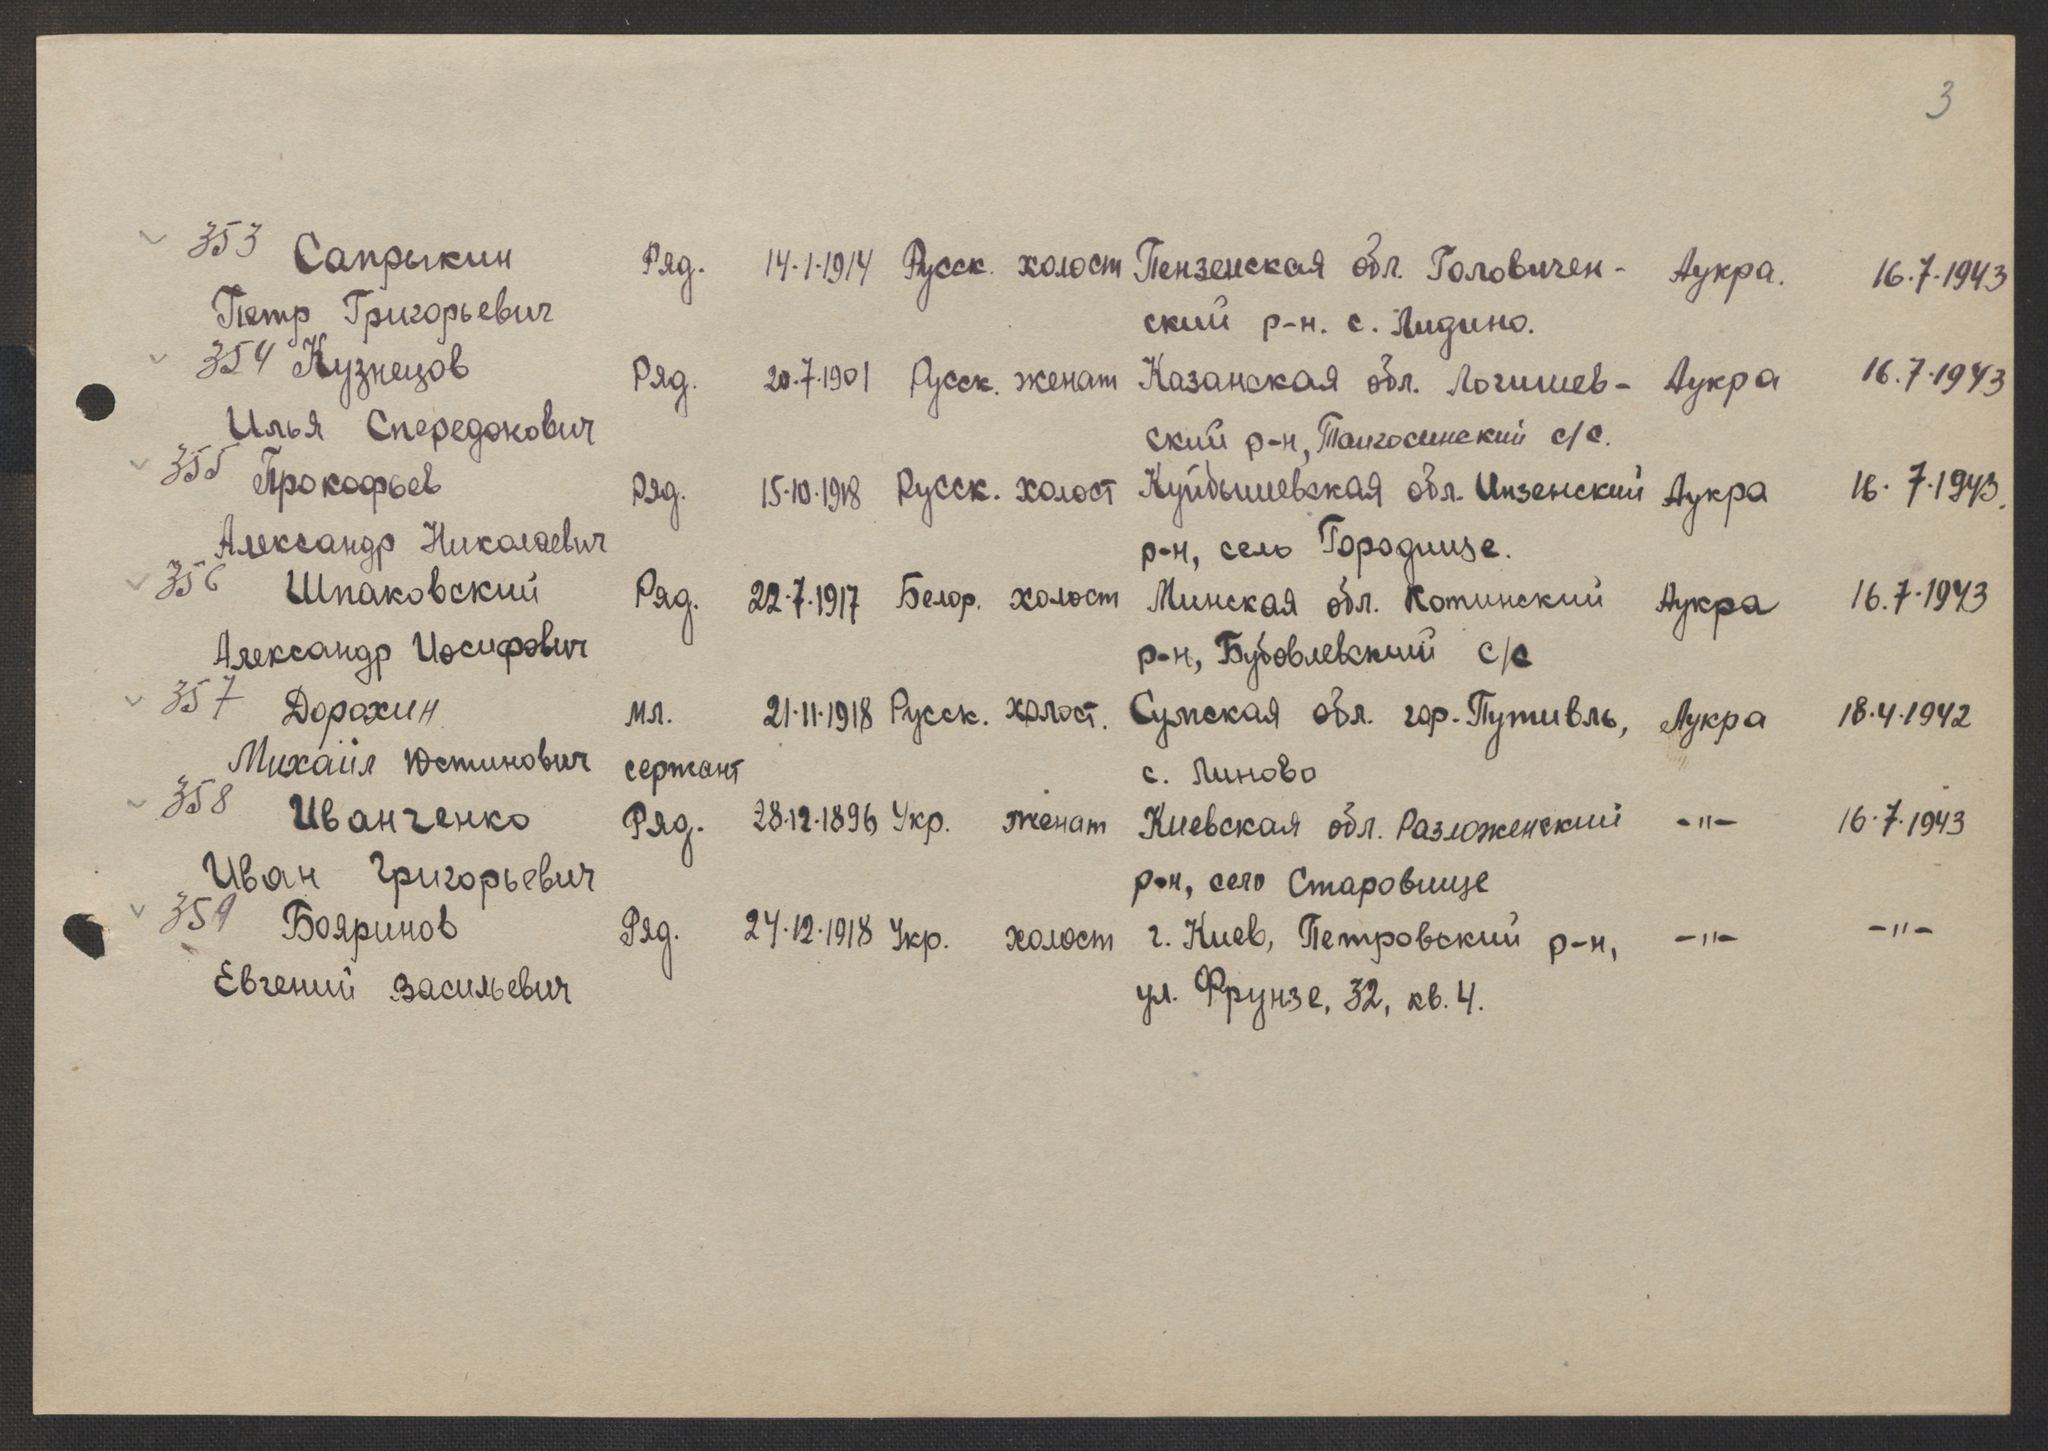 3
353 Сапрыкин Ряд. 14.1.1914 Русск. холост Пензенская обл. Головичен- Аукра. 16.7.1943
Петр Григорьевич ский р-н. с. Лидино.
354 Кузнецов Ряд. 20.7.1901 Русск. женат Казанская обл. Логишев- Аукра 16.7.1943
Илья Спередонович ский р-н, Таигосинский с/с.
355 Прокофьев Ряд. 15.10.1918 Русск. холост Куйбышевская обл. Инзенский Аукра 16.7.1943.
Александр Николаевич р-н, село Городище.
356 Шпаковский Ряд. 22.7.1917 Белор. холост Минская обл. Котинский Аукра 16.7.1943
Александр Иосифович р-н, Бубовлевский с/с
357 Дорохин мл. 21.11.1918 Русск. холост. Сумская обл. гор. Путивль, Аукра 18.4.1942
Михаил Юстинович сержант с. Линово
358 Иванченко Ряд. 28.12.1896 Укр. женат Киевская обл. Разложенский -"- 16.7.1943
Иван Григорьевич р-н, село Старовище
359 Бояринов Ряд. 24.12.1918 Укр. холост г. Киев, Петровский р-н, -"- -"-
Евгений Васильевич ул. Фрунзе, 32, кв. 4.